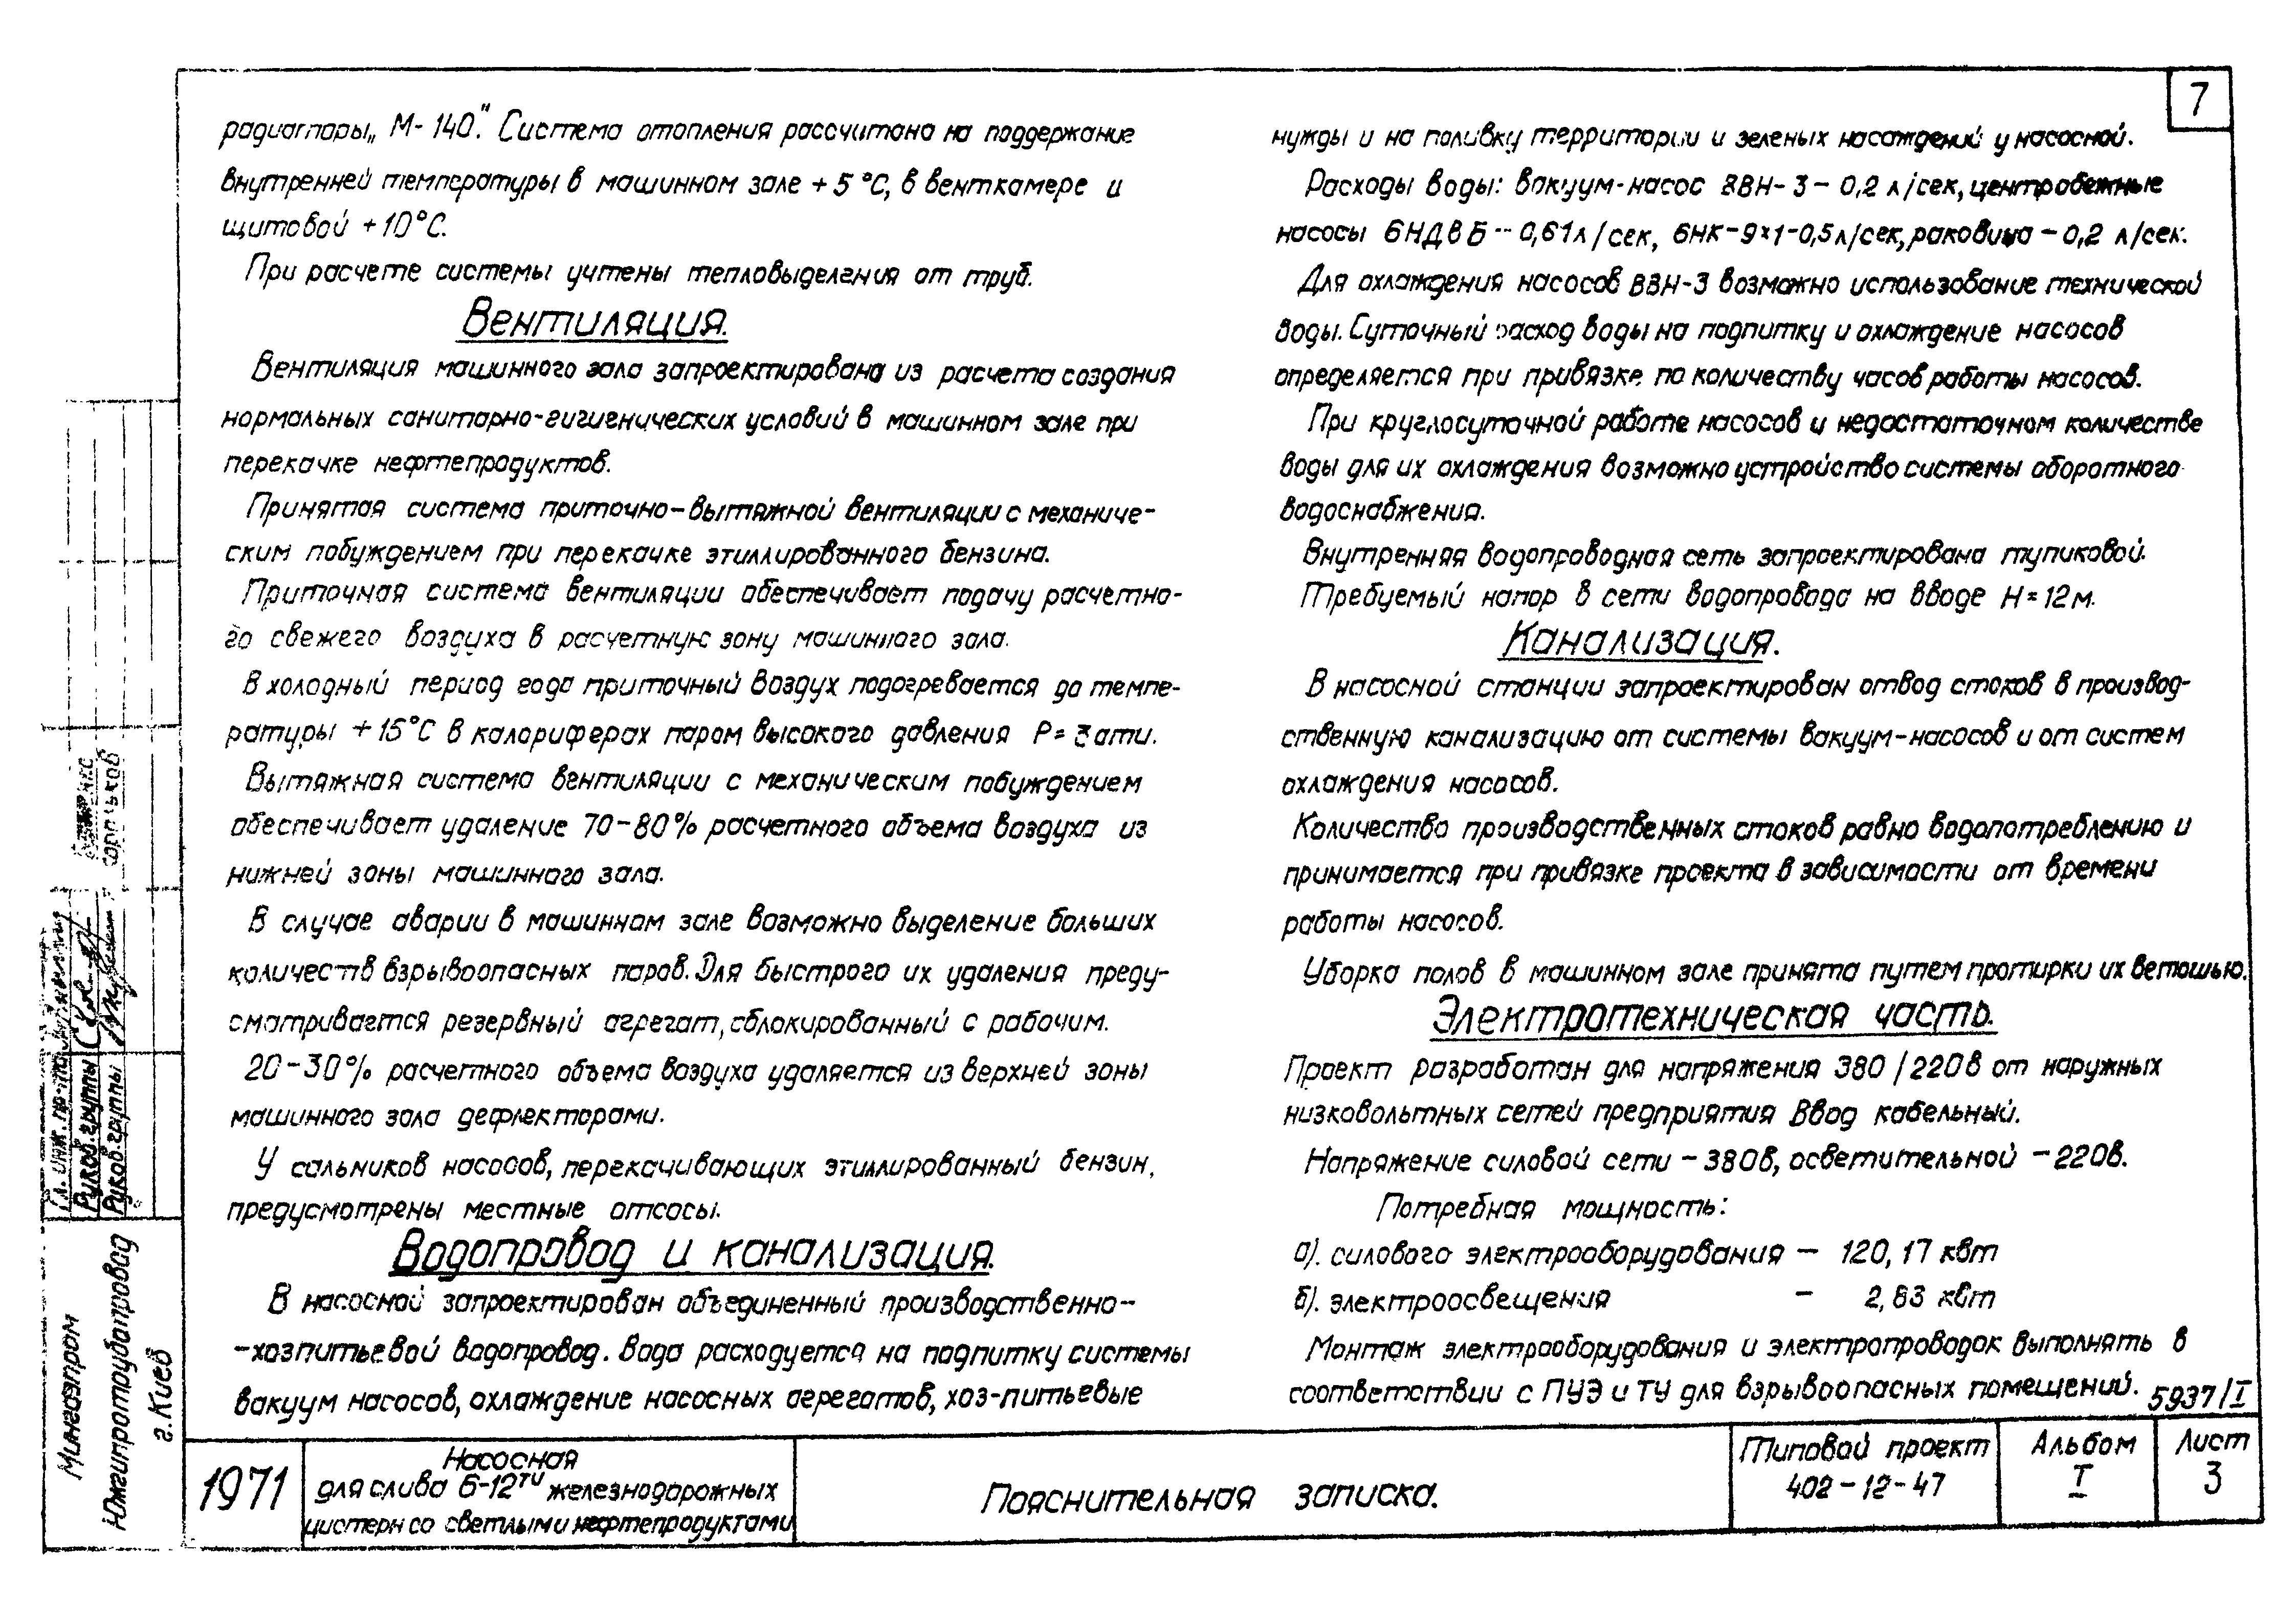 7
радиаторы „М-140". Система отопления рассчитана на поддержание
внутренней температуры в машинном зале +5°С, в венткамере и
щитовой +10°С.
При расчете системы учтены тепловыделения от труб.
Вентиляция.
Вентиляция машинного зала запроектирована из расчета создания
нормальных санитарно-гигиенических условий в машинном зале при
перекачке нефтепродуктов.
Принятая система приточно-вытяжной вентиляции с механиче-
ским побуждением при перекачке этиллированного бензина.
Приточная система вентиляции обеспечивает подачу расчетно-
го свежего воздуха в расчетную зону машинного зала.
В холодный период года приточный воздух подогревается до темпе-
ратуры +15°С в калориферах паром высокого давления Р= ати.
Вытяжная система вентиляции с механическим побуждением
обеспечивает удаление 70-80% расчетного объема воздуха из
нижней зоны машинного зала.
В случае аварии в машинном зале возможно выделение больших
количеств взрывоопасных паров. Для быстрого их удаления преду-
сматривается резервный агрегат, сблокированный с рабочим.
20-30% расчетного объема воздуха удаляется из верхней зоны
машинного зала дефлекторами.
У сальников насосов, перекачивающих этиллированный бензин,
предусмотрены местные отсосы.
Водопровод и канализация.
В насосной запроектирован объединенный производственно-
-хозпитьевой водопровод. Вода расходуется на подпитку системы
вакуум насосов, охлаждение насосных агрегатов, хоз-питьевые
нужды и на поливку территории и зеленых насаждений у насосной.
Расходы воды: вакуум-насос ВВН-3-0,2 л/сек, центробежные
насосы 6НДВБ-0,61л/сек, 6НК-9х1-0,5л/сек, раковина-0,2 л/сек.
Для охлаждения насосов ВВН-3 возможно использование технической
воды. Суточный расход воды на подпитку и охлаждение насосов
определяется при привязке по количеству часов работы насосов.
При круглосуточной работе насосов и недостаточном количестве
воды для их охлаждения возможно устройство системы оборотного
водоснабжения.
Внутренняя водопроводная сеть запроектирована тупиковой.
Требуемый напор в сети водопровода на вводе Н=12м.
Канализация.
В насосной станции запроектирован отвод стоков в производ-
ственную канализацию от системы вакуум-насосов и от систем
охлаждения насосов.
Количество производственных стоков равно водопотреблению и
принимается при привязке проекта в зависимости от времени
работы насосов.
Уборка полов в машинном зале принята путем протирки их ветошью.
Электротехническая часть.
Проект разработан для напряжения 380/220в от наружных
низковольтных сетей предприятия Ввод кабельный.
Напряжение силовой сети - 380в, осветительной - 220в.
Потребная мощность:
а). силового электрооборудования - 120,17 квт
б). электроосвещения - 2,83 квт
Монтаж электрооборудования и электропроводок выполнять в
соответствии с ПУЭ и ТУ для взрывоопасных помещений.
5937/I
Гл. инж. пр-та
Руков. группы
Руков. группы
Мингазпром
Южгипротрубопровод
г. Киев
1971
Насосная
для слива 6-12ти железнодорожных
цистерн со светлыми нефтепродуктами
Пояснительная записка.
Типовой проект
402-12-47
Альбом
I
Лист
3